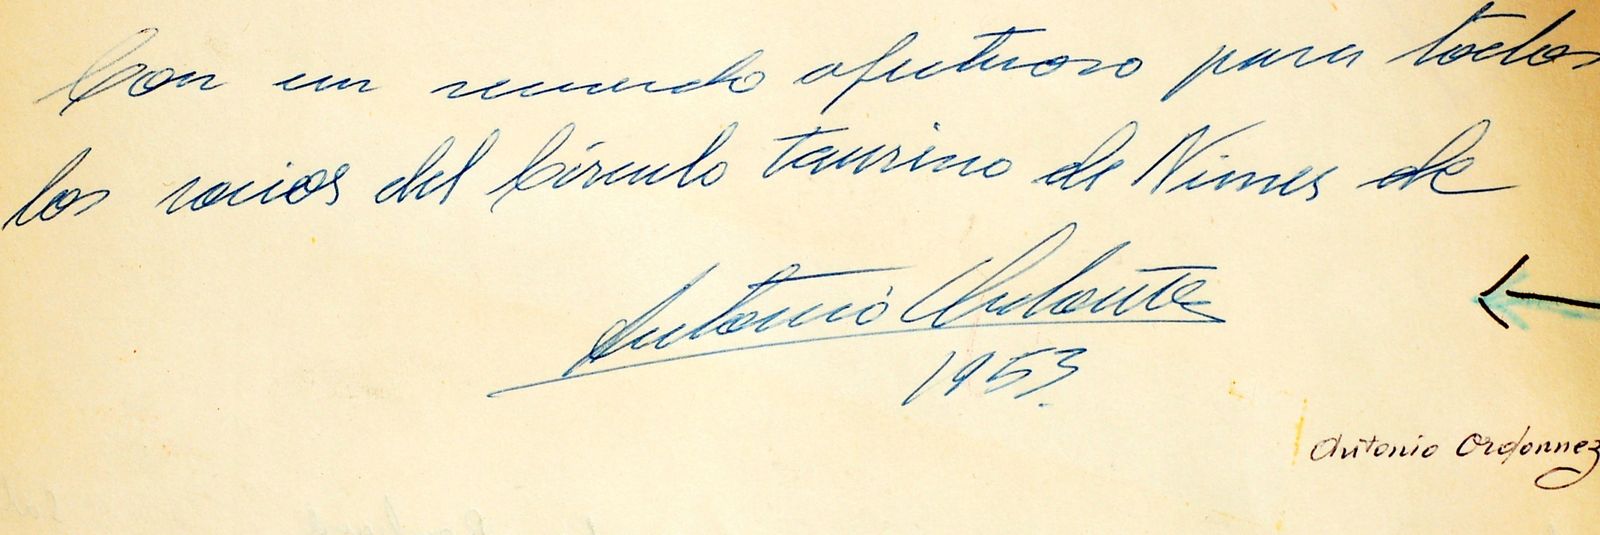 Con un recuerdo afectuoso para todos
los socios del Círculo taurino de Nimes de
Antonio
1953.
Antonio Ordonnez